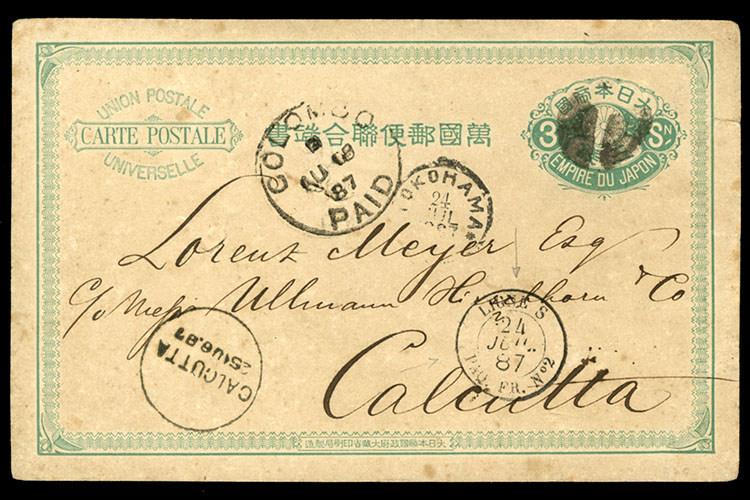 UNION POSTALE
CARTE POSTALE
UNIVERSELLE
書端合聯便郵國萬
大日本帝國
3 Sn
EMPIRE DU JAPON
COLOMBO
AU 18
87
PAID
YOKOHAMA
24
JUL
Lorenz Meyer Esq
c/o Messrs Ullmann Hirschhorn & Co
Calcutta
LIGNE N
24
JUIL.
87
PAQ. FR. No2
CALCUTTA
25 AU 87
大日本帝國政府大藏省印刷局製造